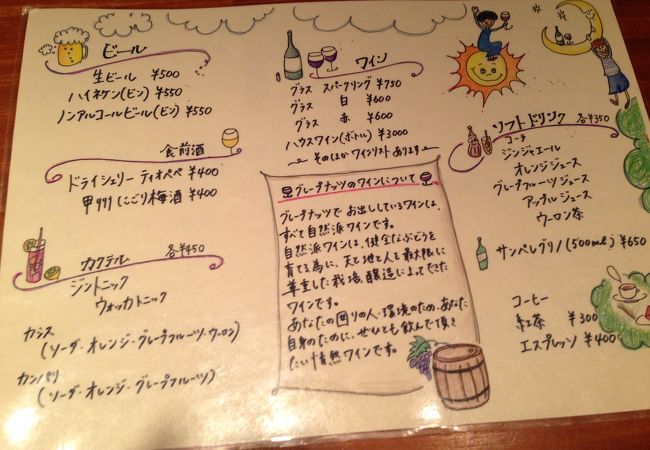 ビール
生ビール ¥500
ハイネケン(ビン) ¥550
ノンアルコールビール(ビン) ¥550
食前酒
ドライシェリー ティオペペ ¥400
甲州にごり梅酒 ¥400
カクテル 各¥450
ジントニック
ウォッカトニック
カシス
(ソーダ・オレンジ・グレープフルーツ・ウーロン)
カンパリ
(ソーダ・オレンジ・グレープフルーツ)
ワイン
グラス スパークリング ¥750
グラス 白 ¥600
グラス 赤 ¥600
ハウスワイン(ボトル) ¥3000
〜そのほかワインリストあります〜
グレープナッツのワインについて
グレープナッツでお出ししているワインは、
すべて自然派ワインです。
自然派ワインは、健全なぶどうを
育てる為に、天と地と人を最大限に
尊重した栽培、醸造によってできた
ワインです。
あなたの周りの人・環境のため、あなた
自身のために、ぜひとも飲んで頂き
たい情熱ワインです。
ソフトドリンク 各¥350
コーラ
ジンジャエール
オレンジジュース
グレープフルーツジュース
アップルジュース
ウーロン茶
サンペレグリノ(500ml) ¥650
コーヒー
紅茶 ¥300
エスプレッソ ¥400